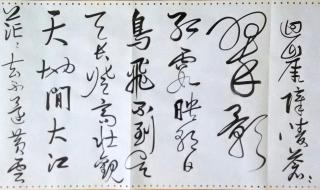 回崖障凌蒼〻
翠影
紅霞映朝日
鳥飛不到吳
天長登高壯觀
天地間大江
茫〻去不還黃雲